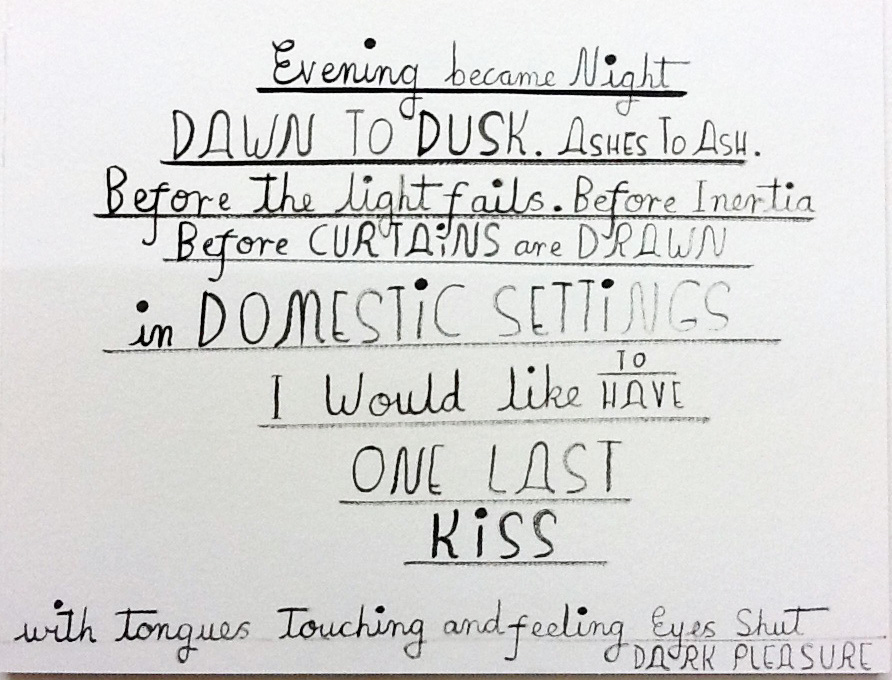 Evening became Night
DAWN TO DUSK. ASHES TO ASH.
Before the light fails. Before Inertia
Before CURTAiNS are DRAWN
in DOMESTiC SETTiNGS
I Would like TO HAVE
ONE LAST
KiSS
with Tongues Touching and feeling Eyes Shut
DARK PLEASURE